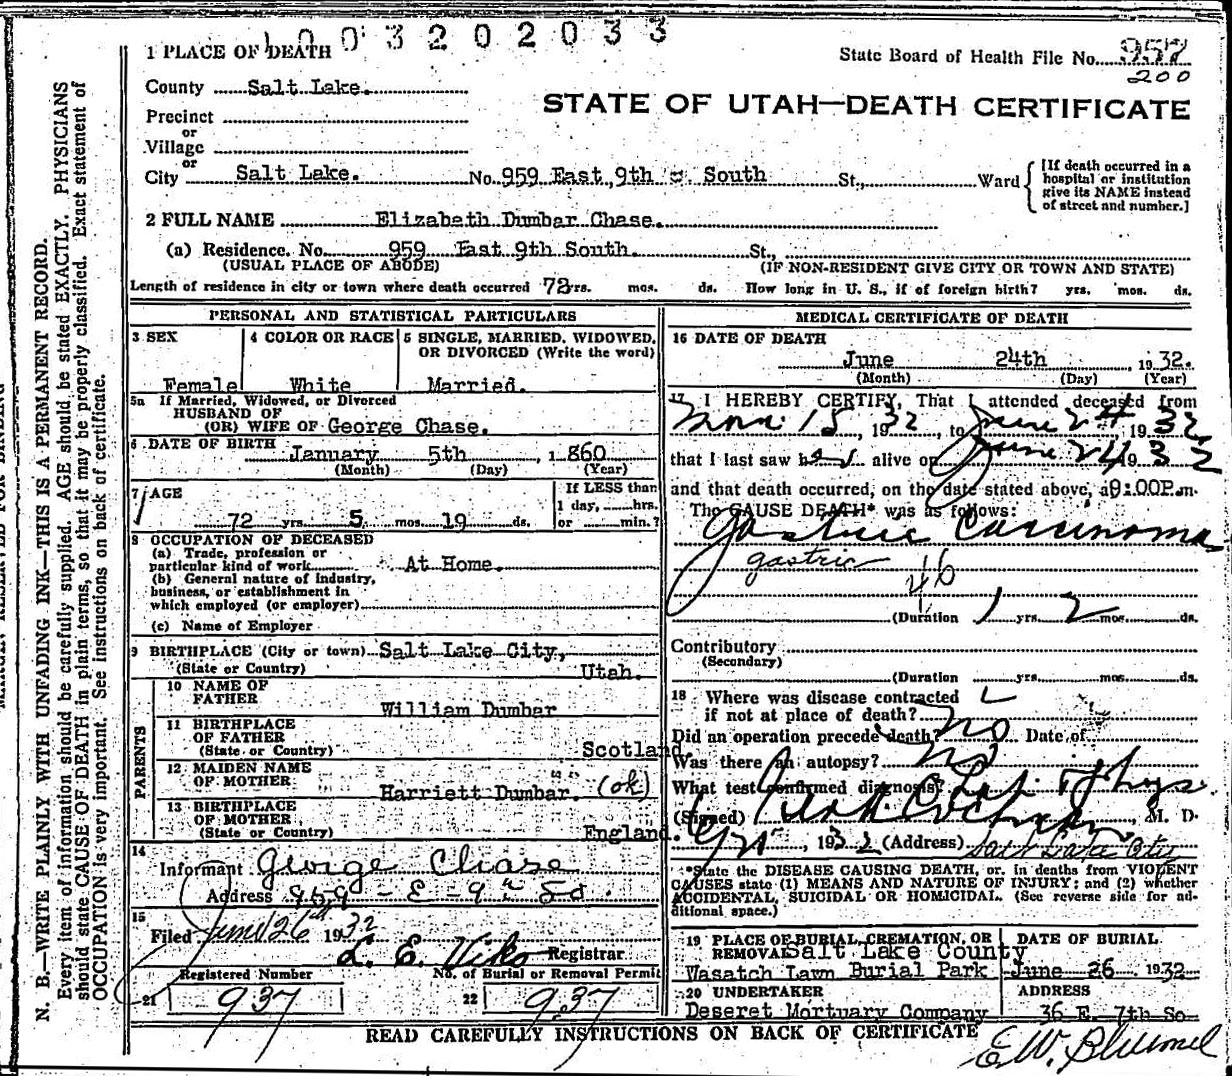 1003202033
1 PLACE OF DEATH
State Board of Health File No. 957
200
County Salt Lake.
STATE OF UTAH—DEATH CERTIFICATE
Precinct
or
Village
or
City Salt Lake. No. 959 East 9th = South St., Ward [If death occurred in a hospital or institution give its NAME instead of street and number.]
2 FULL NAME Elizabeth Dumbar Chase.
(a) Residence. No. 959 East 9th South. St.,
(USUAL PLACE OF ABODE) (IF NON-RESIDENT GIVE CITY OR TOWN AND STATE)
Length of residence in city or town where death occurred 72 yrs. mos. ds. How long in U. S., if of foreign birth? yrs. mos. ds.
PERSONAL AND STATISTICAL PARTICULARS
3 SEX
Female
4 COLOR OR RACE
White
5 SINGLE, MARRIED, WIDOWED, OR DIVORCED (Write the word)
Married.
5a If Married, Widowed, or Divorced
HUSBAND OF
(OR) WIFE OF George Chase.
6 DATE OF BIRTH January 5th, 1860
(Month) (Day) (Year)
7 AGE
72 yrs. 5 mos. 19 ds.
If LESS than
1 day, hrs.
or min.?
8 OCCUPATION OF DECEASED
(a) Trade, profession or
particular kind of work At Home.
(b) General nature of industry,
business, or establishment in
which employed (or employer)
(c) Name of Employer
9 BIRTHPLACE (City or town) Salt Lake City,
(State or Country) Utah.
PARENTS
10 NAME OF
FATHER William Dumbar
11 BIRTHPLACE
OF FATHER
(State or Country) Scotland.
12 MAIDEN NAME
OF MOTHER Harriett Dumbar. (ok)
13 BIRTHPLACE
OF MOTHER
(State or Country) England.
14
Informant George Chase
Address 959 - E - 9th So.
15
Filed June 26th 1932
L. E. Viko Registrar
Registered Number No. of Burial or Removal Permit
21 937 22 937
MEDICAL CERTIFICATE OF DEATH
16 DATE OF DEATH
June 24th, 1932.
(Month) (Day) (Year)
17 I HEREBY CERTIFY, That I attended deceased from
15, 1932, to June 24 1932,
that I last saw her alive on June 24 1932
and that death occurred, on the date stated above, at 9:00P.m.
The CAUSE DEATH* was as follows:
Gastric Carcinoma
gastric
46
(Duration 1 yrs. 2 mos. ds.
Contributory
(Secondary)
(Duration yrs. mos. ds.
18 Where was disease contracted
if not at place of death?
Did an operation precede death? No Date of
Was there an autopsy? No
What test confirmed diagnosis? Lab. + Phys
(Signed) M. D.
1932 (Address) Salt Lake City
*State the DISEASE CAUSING DEATH, or, in deaths from VIOLENT
CAUSES state (1) MEANS AND NATURE OF INJURY; and (2) whether
ACCIDENTAL, SUICIDAL OR HOMICIDAL. (See reverse side for additional space.)
19 PLACE OF BURIAL, CREMATION, OR
REMOVAL Salt Lake County
Wasatch Lawn Burial Park
DATE OF BURIAL
June 26, 1932
20 UNDERTAKER
Deseret Mortuary Company
ADDRESS
36 E. 7th So
READ CAREFULLY INSTRUCTIONS ON BACK OF CERTIFICATE
E.W. Blumel
N. B.—WRITE PLAINLY WITH UNFADING INK—THIS IS A PERMANENT RECORD.
Every item of information should be carefully supplied. AGE should be stated EXACTLY. PHYSICIANS
should state CAUSE OF DEATH in plain terms, so that it may be properly classified. Exact statement of
OCCUPATION is very important. See instructions on back of certificate.